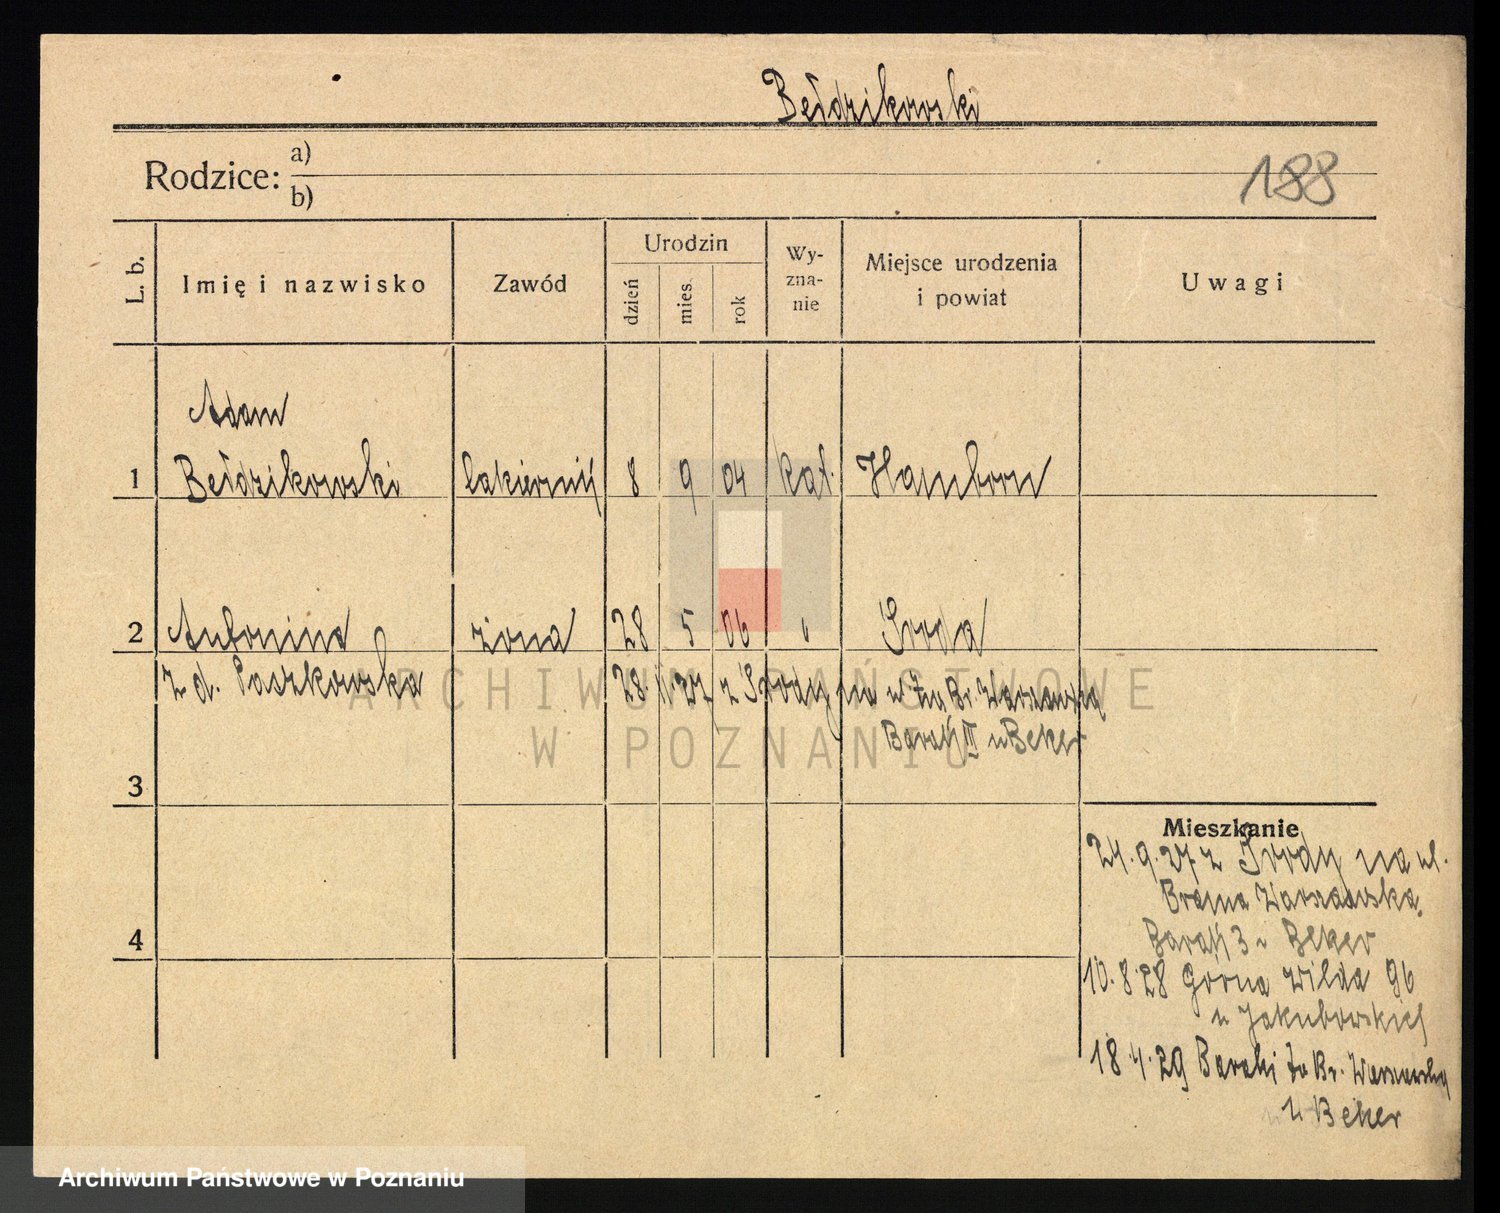 Bełdzikowski
Rodzice: a)
b)
188
L. b.
Imię i nazwisko
Zawód
Urodzin
dzień
mies.
rok
Wy-
zna-
nie
Miejsce urodzenia
i powiat
Uwagi
Adam
1 Bełdzikowski lakiernik 8 9 04 kat. Hamborn
2 Antonina żona 28 5 06 " Sroda
z d. Paszkowska 28. 11 27 z Srody na u. Za Br. Warszawską
Barak III u Beker
ARCHIWUM PAŃSTWOWE
W POZNANIU
3
Mieszkanie
24.9.27 z Srody na ul.
Brama Warszawska,
Barak 3 u Beker
4
10.8.28 Górna Wilda 96
u Jakubowskich
18.4.29 Baraki Za Br. Warszawską
u Beker
Archiwum Państwowe w Poznaniu